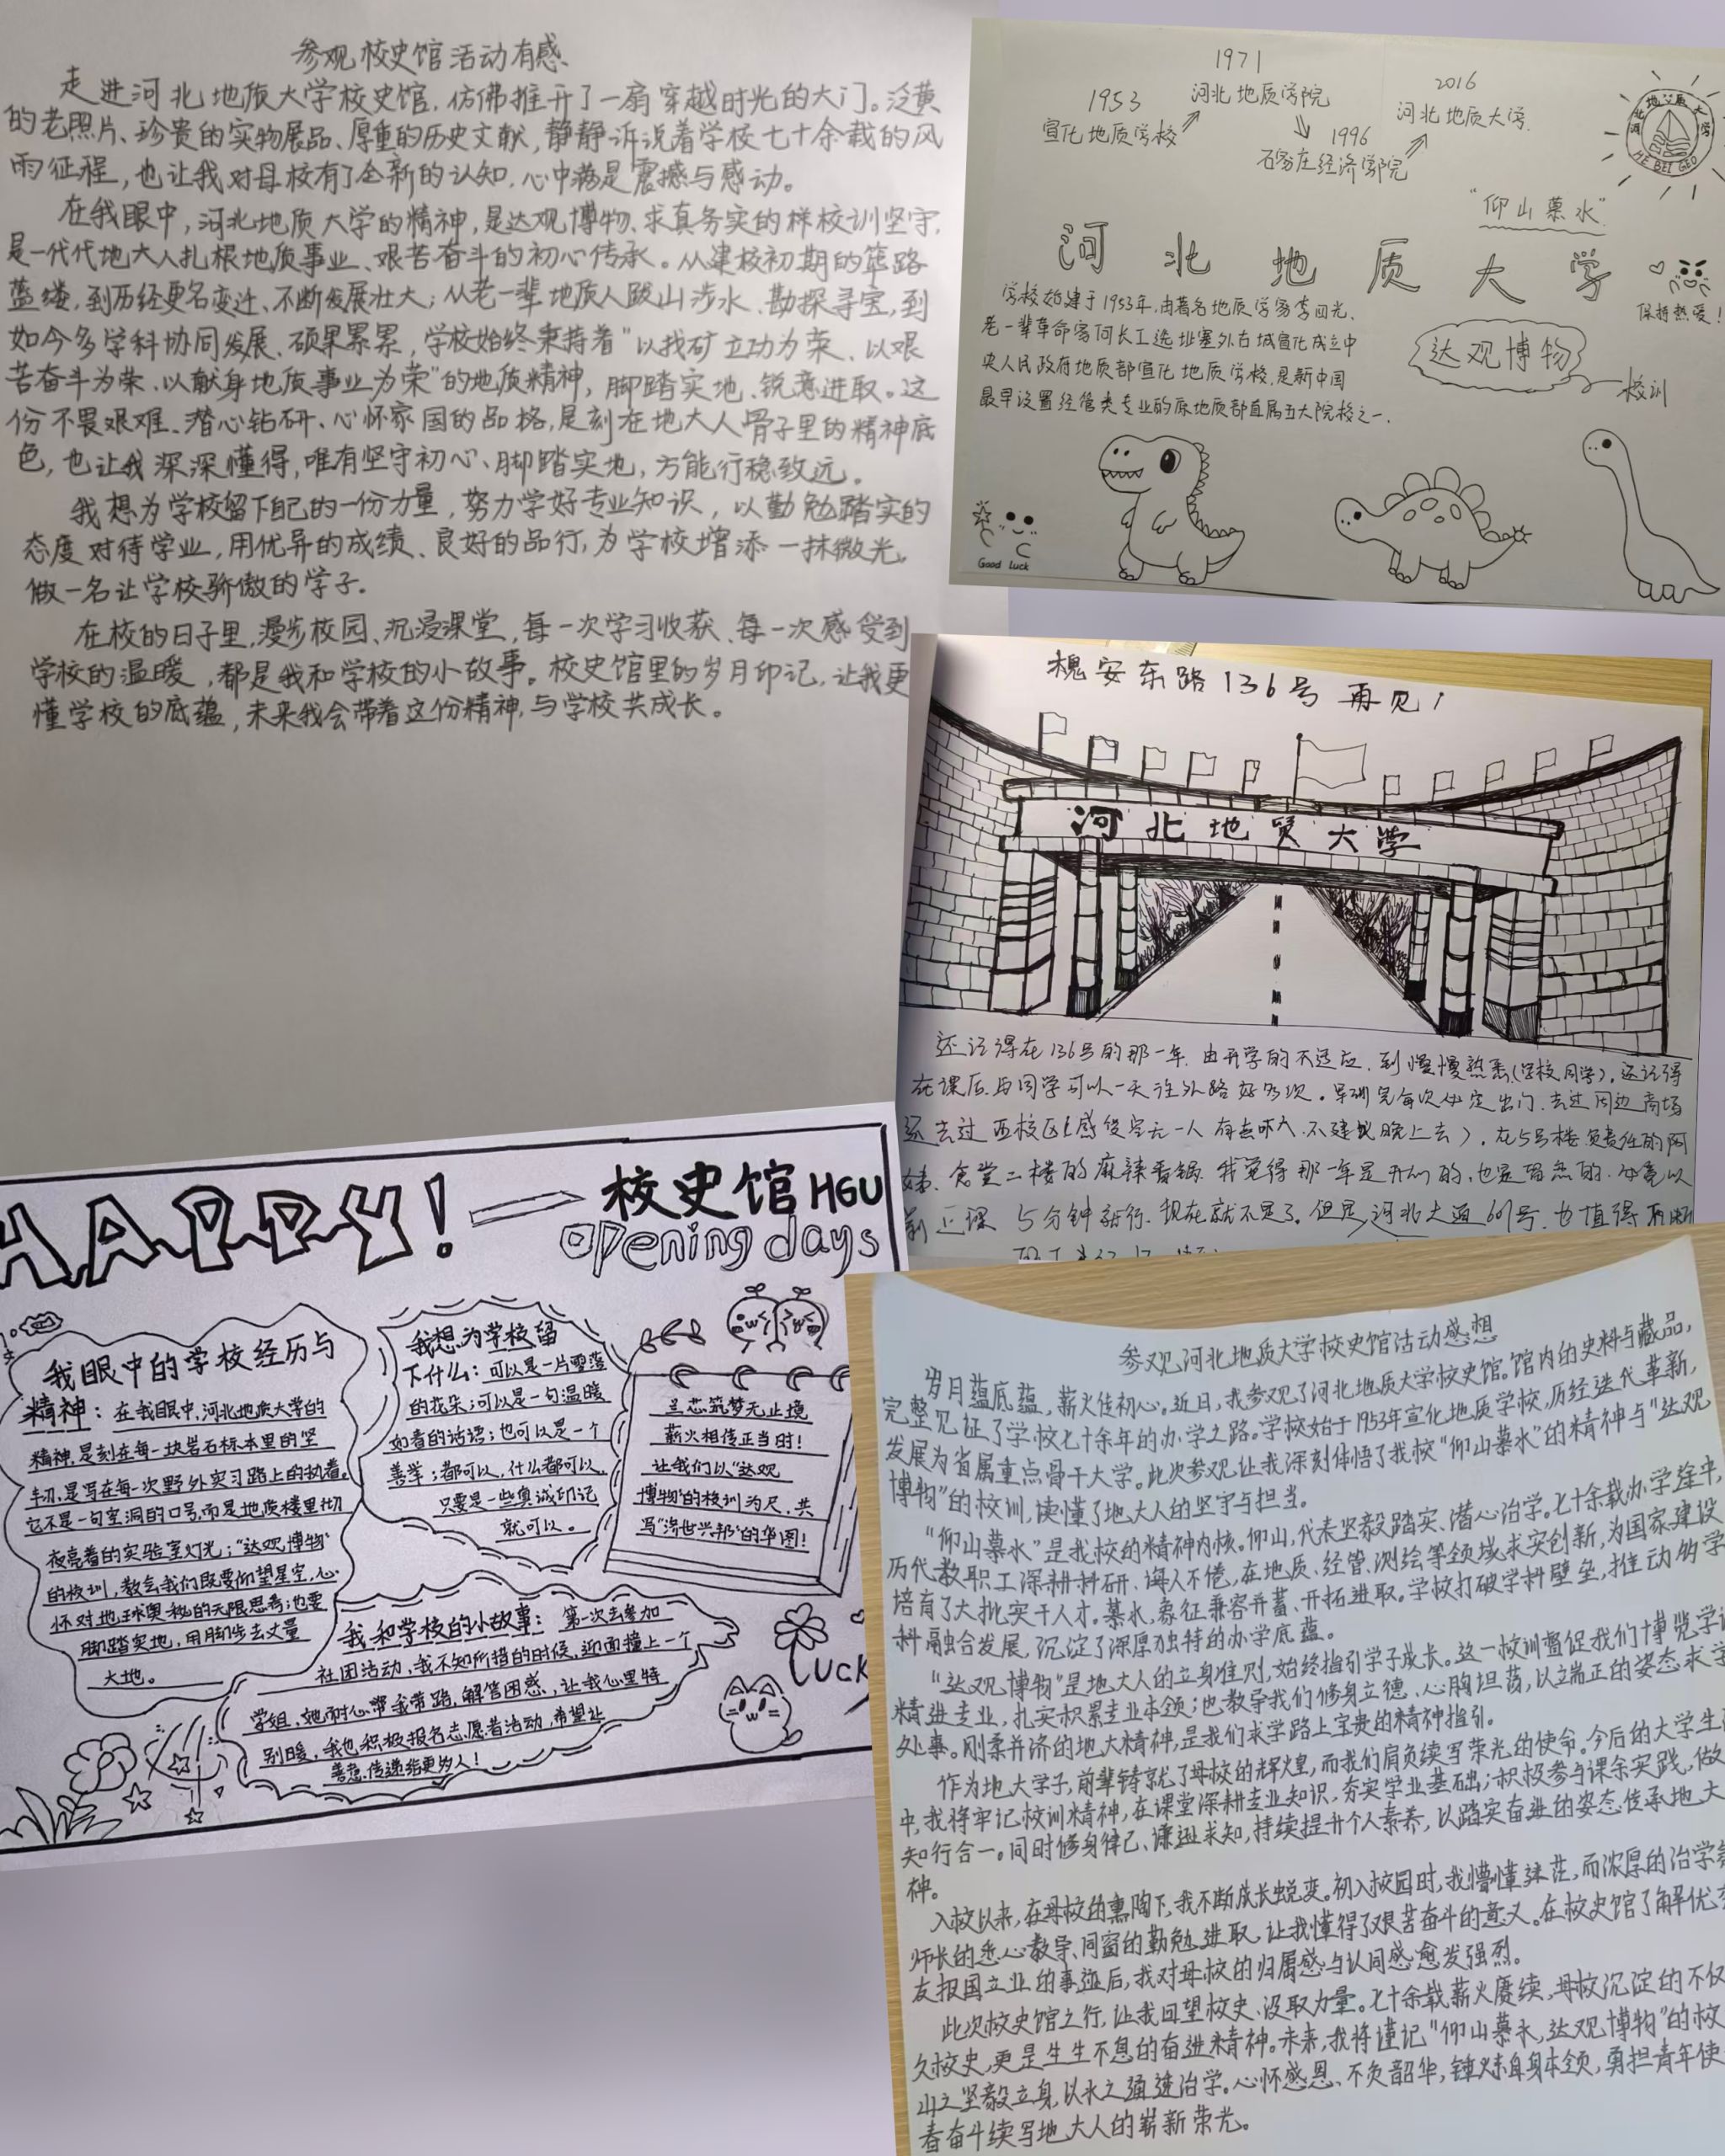 参观校史馆活动有感
走进河北地质大学校史馆,仿佛推开了一扇穿越时光的大门。泛黄
的老照片、珍贵的实物展品、厚重的历史文献,静静诉说着学校七十余载的风
雨征程,也让我对母校有了全新的认知,心中满是震撼与感动。
在我眼中,河北地质大学的精神,是达观博物、求真务实的样校训坚守,
是一代代地大人扎根地质事业、艰苦奋斗的初心传承。从建校初期的筚路
蓝缕,到历经更名变迁、不断发展壮大;从老一辈地质人跋山涉水、勘探寻宝,到
如今多学科协同发展、硕果累累,学校始终秉持着“以找矿立功为荣、以艰
苦奋斗为荣、以献身地质事业为荣”的地质精神,脚踏实地、锐意进取。这
份不畏艰难、潜心钻研、心怀家国的品格,是刻在地大人骨子里的精神底
色,也让我深深懂得,唯有坚守初心、脚踏实地,方能行稳致远。
我想为学校留下自己的一份力量,努力学好专业知识,以勤勉踏实的
态度对待学业,用优异的成绩、良好的品行,为学校增添一抹微光,
做一名让学校骄傲的学子。
在校的日子里,漫步校园、沉浸课堂,每一次学习收获、每一次感受到
学校的温暖,都是我和学校的小故事。校史馆里的岁月印记,让我更
懂学校的底蕴,未来我会带着这份精神,与学校共成长。
1953
宣化地质学校
1971
河北地质学院
1996
石家庄经济学院
2016
河北地质大学
河北地质大学
HE BEI GEO
“仰山慕水”
河北地质大学
保持热爱!
学校始建于1953年,由著名地质学家李四光、
老一辈革命家何长工选址塞外古城宣化成立中
央人民政府地质部宣化地质学校,是新中国
最早设置经管类专业的原地质部直属五大院校之一.
达观博物
校训
Good Luck
槐安东路136号 再见!
河北地质大学
还记得在136号的那一年,由开学的不适应,到慢慢熟悉(学校,同学)。还记得
在课后,与同学可以一天往外跑好多次。军训完每次必定出门,去过周边商场
还去过西校区(感觉空无一人 有点吓人,不建议晚上去)。在5号楼负责任的阿
姨、食堂二楼的麻辣香锅。我觉得那一年是开心的,也是留恋的,毕竟以
前上课 5分钟就行,现在就不是了。但是,河北大道69号,也值得
HAPPY! 校史馆HGU
Opening days
我眼中的学校经历与
精神:在我眼中,河北地质大学的
精神,是刻在每一块岩石标本里的坚
韧,是写在每一次野外实习路上的执着。
它不是一句空洞的口号,而是地质楼里彻
夜亮着的实验室灯光;“达观博物”
的校训,教会我们既要仰望星空,心
怀对地球奥秘的无限思考;也要
脚踏实地,用脚步去丈量
大地。
我想为学校留
下什么:可以是一片零落
的花朵;可以是一句温暖
如春的话语;也可以是一个
善举;都可以,什么都可以,
只要是一些真诚印记
就可以。
兰芯筑梦无止境
薪火相传正当时!
让我们以“达观
博物”的校训为尺,共
写“济世兴邦”的华图!
我和学校的小故事:第一次去参加
社团活动,我不知所措的时候,迎面撞上一个
学姐,她耐心帮我带路,解答困惑,让我心里特
别暖,我也积极报名志愿者活动,希望让
善意传递给更多人!
LUCK
参观河北地质大学校史馆活动感想
岁月蕴底蕴,薪火传初心。近日,我参观了河北地质大学校史馆。馆内的史料与藏品,
完整见证了学校七十余年的办学之路。学校始于1953年宣化地质学校,历经迭代革新,
发展为省属重点骨干大学。此次参观,让我深刻体悟了我校“仰山慕水”的精神与“达观
博物”的校训,读懂了地大人的坚守与担当。
“仰山慕水”是我校的精神内核。仰山,代表坚毅踏实、潜心治学。七十余载办学途中,
历代教职工深耕科研、诲人不倦,在地质、经管、测绘等领域求实创新,为国家建设
培育了大批实干人才。慕水,象征兼容并蓄、开拓进取。学校打破学科壁垒,推动多学
科融合发展,沉淀了深厚独特的办学底蕴。
“达观博物”是地大人的立身准则,始终指引学子成长。这一校训督促我们博览学识
精进专业,扎实积累专业本领;也教导我们修身立德、心胸坦荡,以端正的姿态求学
处事。刚柔并济的地大精神,是我们求学路上宝贵的精神指引。
作为地大学子,前辈铸就了母校的辉煌,而我们肩负续写荣光的使命。今后的大学生活
中,我将牢记校训精神,在课堂深耕专业知识,夯实学业基础;积极参与课余实践,做
知行合一。同时修身律己、谦逊求知,持续提升个人素养,以踏实奋进的姿态传承地大
神。
入校以来,在母校的熏陶下,我不断成长蜕变。初入校园时,我懵懂迷茫,而浓厚的治学
师长的悉心教导、同窗的勤勉进取,让我懂得了艰苦奋斗的意义。在校史馆了解优
友报国立业的事迹后,我对母校的归属感与认同感愈发强烈。
此次校史馆之行,让我回望校史、汲取力量。七十余载薪火赓续,母校沉淀的不仅
久校史,更是生生不息的奋进精神。未来,我将谨记“仰山慕水,达观博物”的校
山之坚毅立身,以水之通达治学。心怀感恩、不负韶华,锤炼自身本领,勇担青年使
春奋斗续写地大人的崭新荣光。